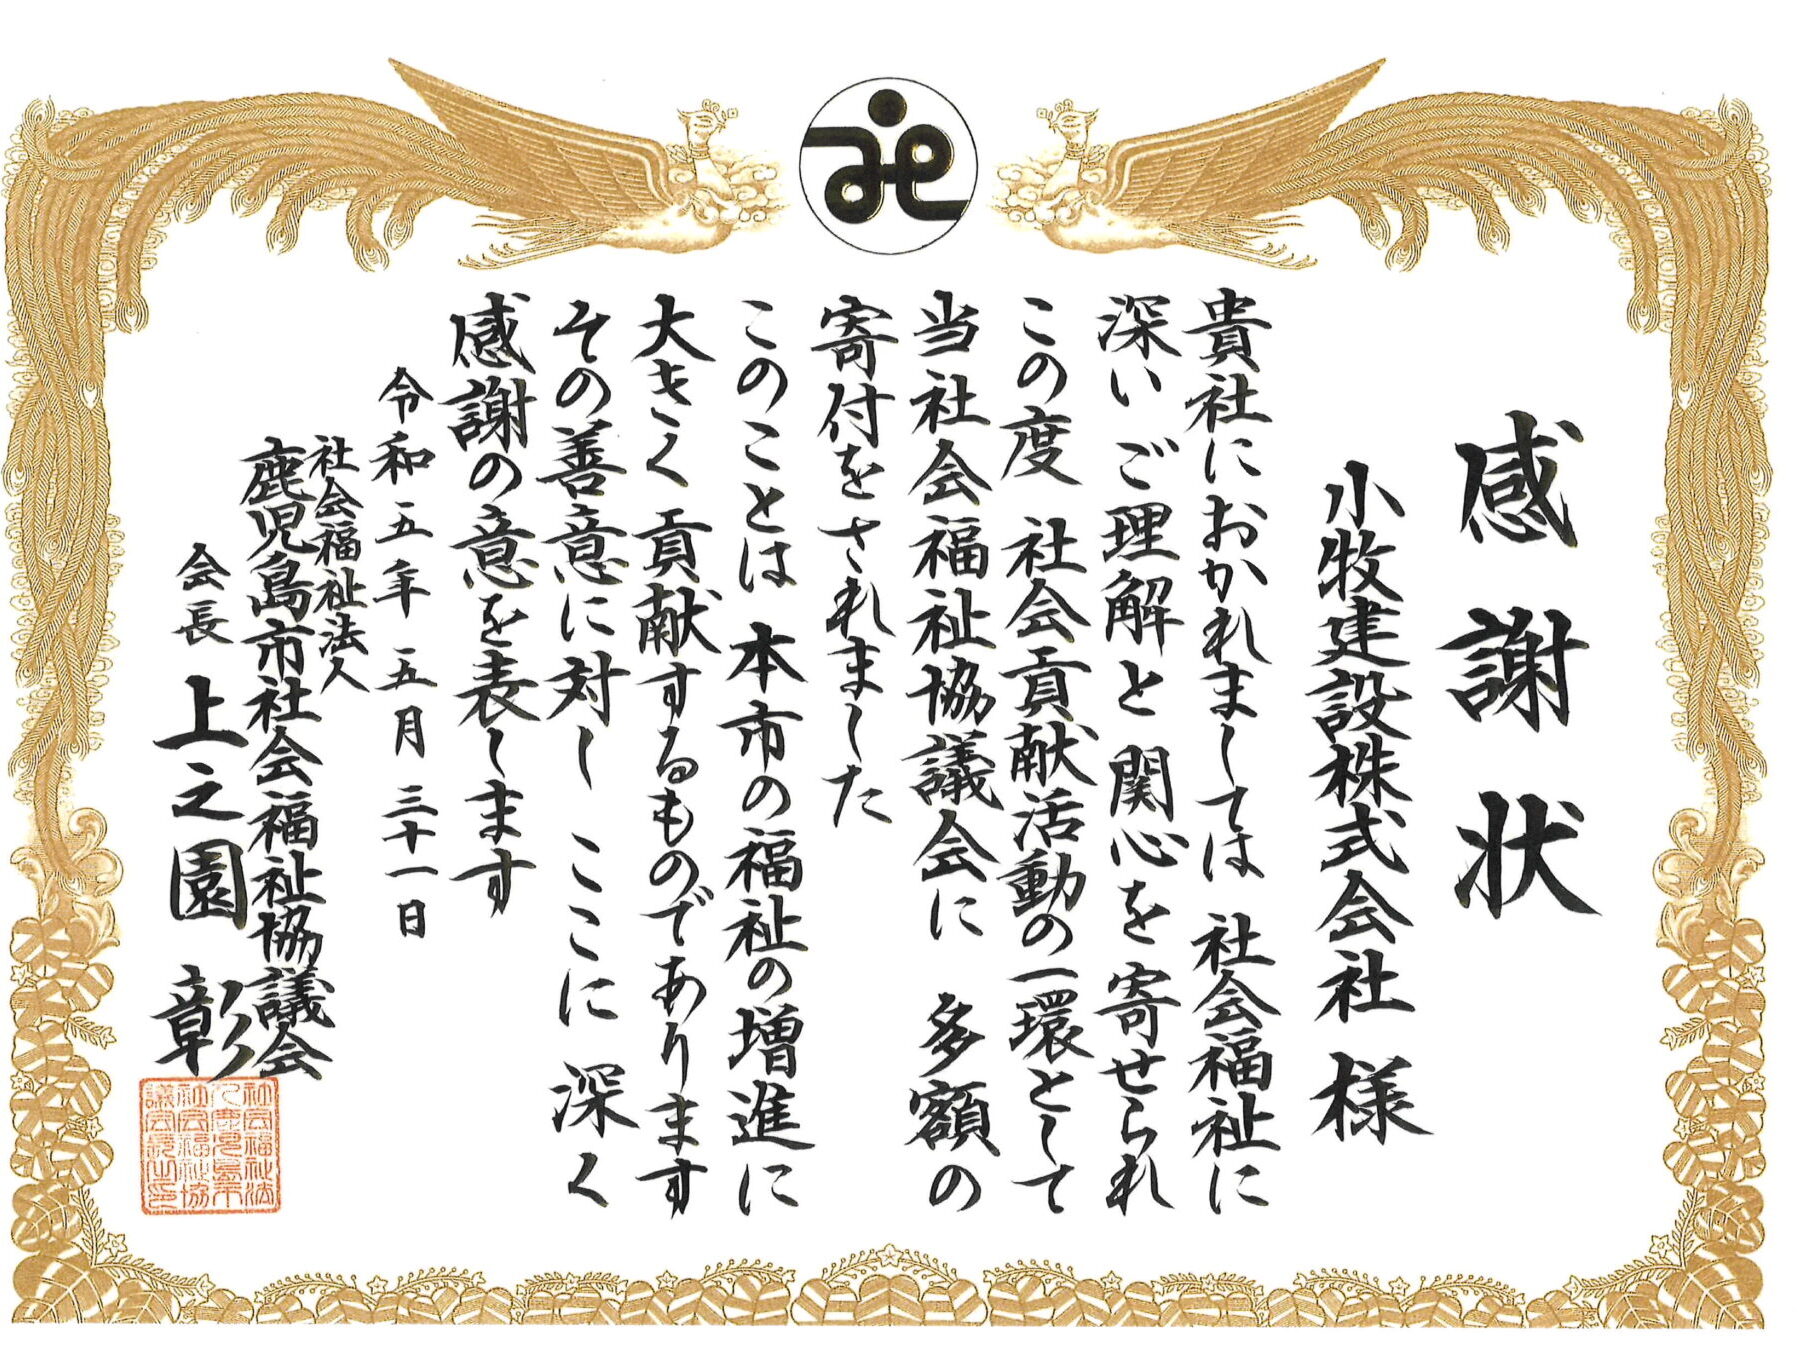 感謝状
小牧建設株式会社 様
貴社におかれましては 社会福祉に
深い ご理解と 関心を 寄せられ
この度 社会貢献活動の一環として
当社会福祉協議会に 多額の
寄付をされました
このことは 本市の福祉の増進に
大きく 貢献するものであります
その善意に対し ここに 深く
感謝の意を表します
令和五年五月三十一日
社会福祉法人
鹿児島市社会福祉協議会
会長 上之園 彰
社会福祉法
人鹿児島市
社会福祉協
議会長之印